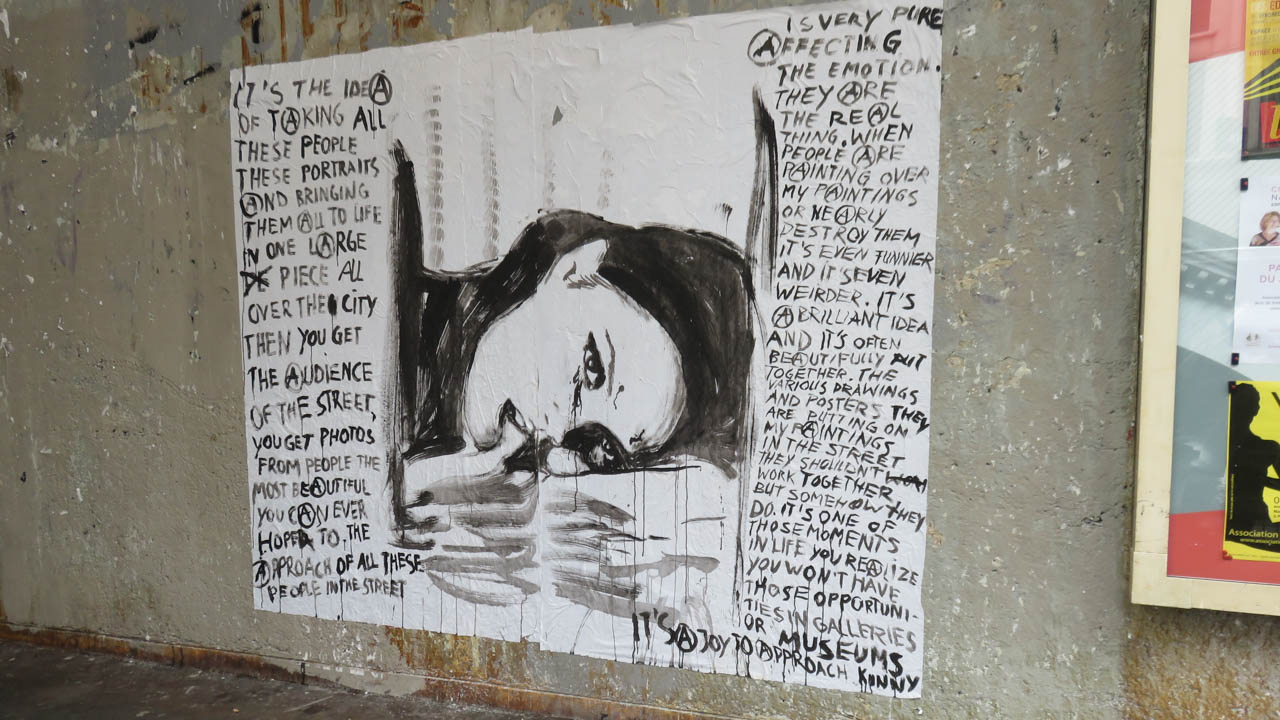 IT'S THE IDEA
OF TAKING ALL
THESE PEOPLE
THESE PORTRAITS
AND BRINGING
THEM ALL TO LIFE
IN ONE LARGE
PIECE ALL
OVER THE CITY
THEN YOU GET
THE AUDIENCE
OF THE STREET,
YOU GET PHOTOS
FROM PEOPLE THE
MOST BEAUTIFUL
YOU CAN EVER
HOPE TO. THE
APPROACH OF ALL THESE
PEOPLE IN THE STREET
IS VERY PURE
AFFECTING
THE EMOTION.
THEY ARE
THE REAL
THING. WHEN
PEOPLE ARE
PAINTING OVER
MY PAINTINGS
OR NEARLY
DESTROY THEM
IT'S EVEN FUNNIER
AND IT'S EVEN
WEIRDER. IT'S
A BRILLIANT IDEA
AND IT'S OFTEN
BEAUTIFULLY PUT
TOGETHER. THE
VARIOUS DRAWINGS
AND POSTERS THEY
ARE PUTTING ON
MY PAINTINGS
IN THE STREET
THEY SHOULDN'T
WORK TOGETHER
BUT SOMEHOW THEY
DO. IT'S ONE OF
THOSE MOMENTS
IN LIFE YOU REALIZE
YOU WON'T HAVE
THOSE OPPORTUNI-
TIES IN GALLERIES
OR MUSEUMS
IT'S A JOY TO APPROACH KUNNY
Association